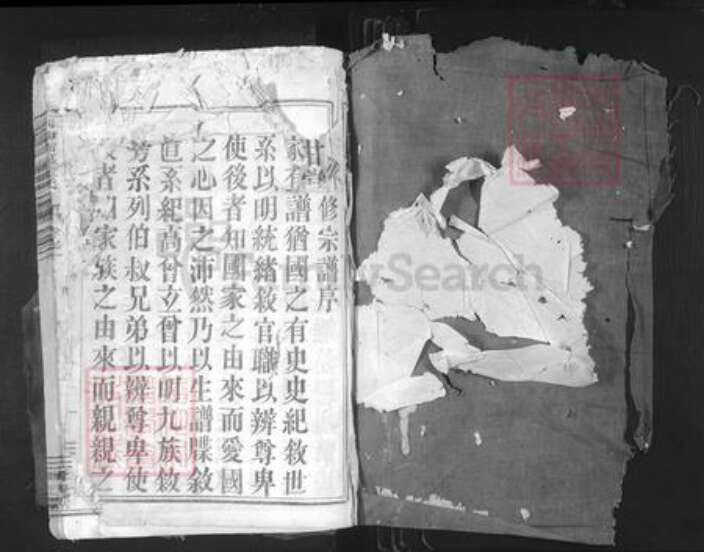 修宗譜序
家有譜猶國之有史史紀敘世
系以明統緒敘官職以辨尊卑
使後者知國家之由來而愛國
之心因之沛然乃以生譜牒敘
直系紀高曾立曾以明九族敘
旁系列伯叔兄弟以辨尊卑使
者知家族之由來而親親之
FamilySearch